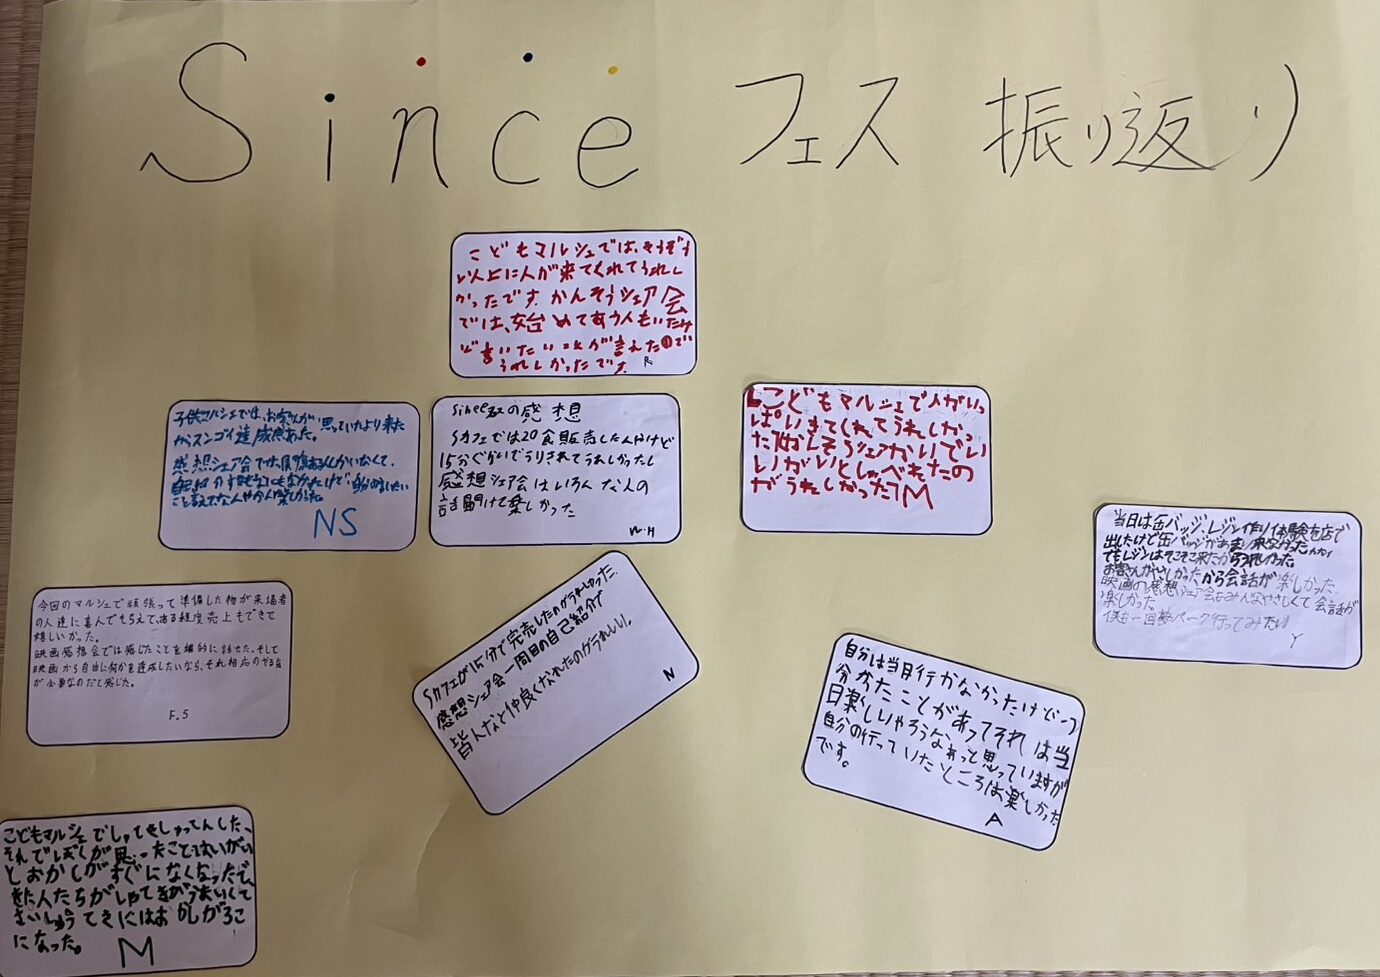 Since フェス 振り返り
こどもマルシェでは、そうぞう
以上に人が来てくれてうれし
かったです。かんそうシェア会
では、始めてあう人もいたけ
ど言いたいことが言えたので
うれしかったです。 R
子供マルシェでは、お客さんが思っていたより来た
からスンゴイ達成感あった。
感想シェア会では
こと言えたな
NS
の感想
Sカフェでは20食販売したんだけど
15分ぐらいでうりきれてうれしかったし
感想シェア会はいろんな人の
話聞けて楽しかった
W.H
こどもマルシェで人がいっ
ぱいきてくれてうれしかっ
た かんそうシェアかいでい
いがいとしゃべれたの
がうれしかった M
当日は缶バッジ、レジン作り体験を店で
出したけど缶バッジがあまり来なかった
でもレジンはそこそこ来たからうれしかった。
お客さんがやさしかったから会話が楽しかった
映画の感想シェア会もみんなやさしくて会話が
楽しかった。
もう一回夢パーク行ってみたい!
Y
今回のマルシェで頑張って準備した物が来場者
の人達に喜んでもらえて、ある程度売上もできて
嬉しかった。
映画感想会では感じたことを端的に話せた。そして
映画から自由に何かを達成したいなら、それ相応のやる気
が必要なのだと感じた。
F.S
Sカフェが15分で完売したのがうれしかった。
感想シェア会一周目の自己紹介で
皆んなと仲良くなれたのがうれしい。
N
自分は当日行かなかったけど1つ
分かったことがあってそれは当
日楽しいやろうなぁっと思っていますが
自分の行っていたところは楽しかった
です。
A
こどもマルシェでしゃてきしゅってんした、
それでぼくが思ったことはいがい
とおかしがすぐになくなったで、
きた人たちがしゃてきがうまいくて
さいしゅうてきにはおかしがろこ
になった。
M